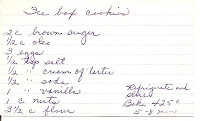 Ice box cookies
2 c brown sugar
1/2 c oleo
3 eggs
1/2 tsp salt
1/2 " cream of tarter
1/2 " soda
1 " vanilla
1 c nuts
3 1/2 c flour
Refrigerate and
slice
Bake 425°
5-8 min